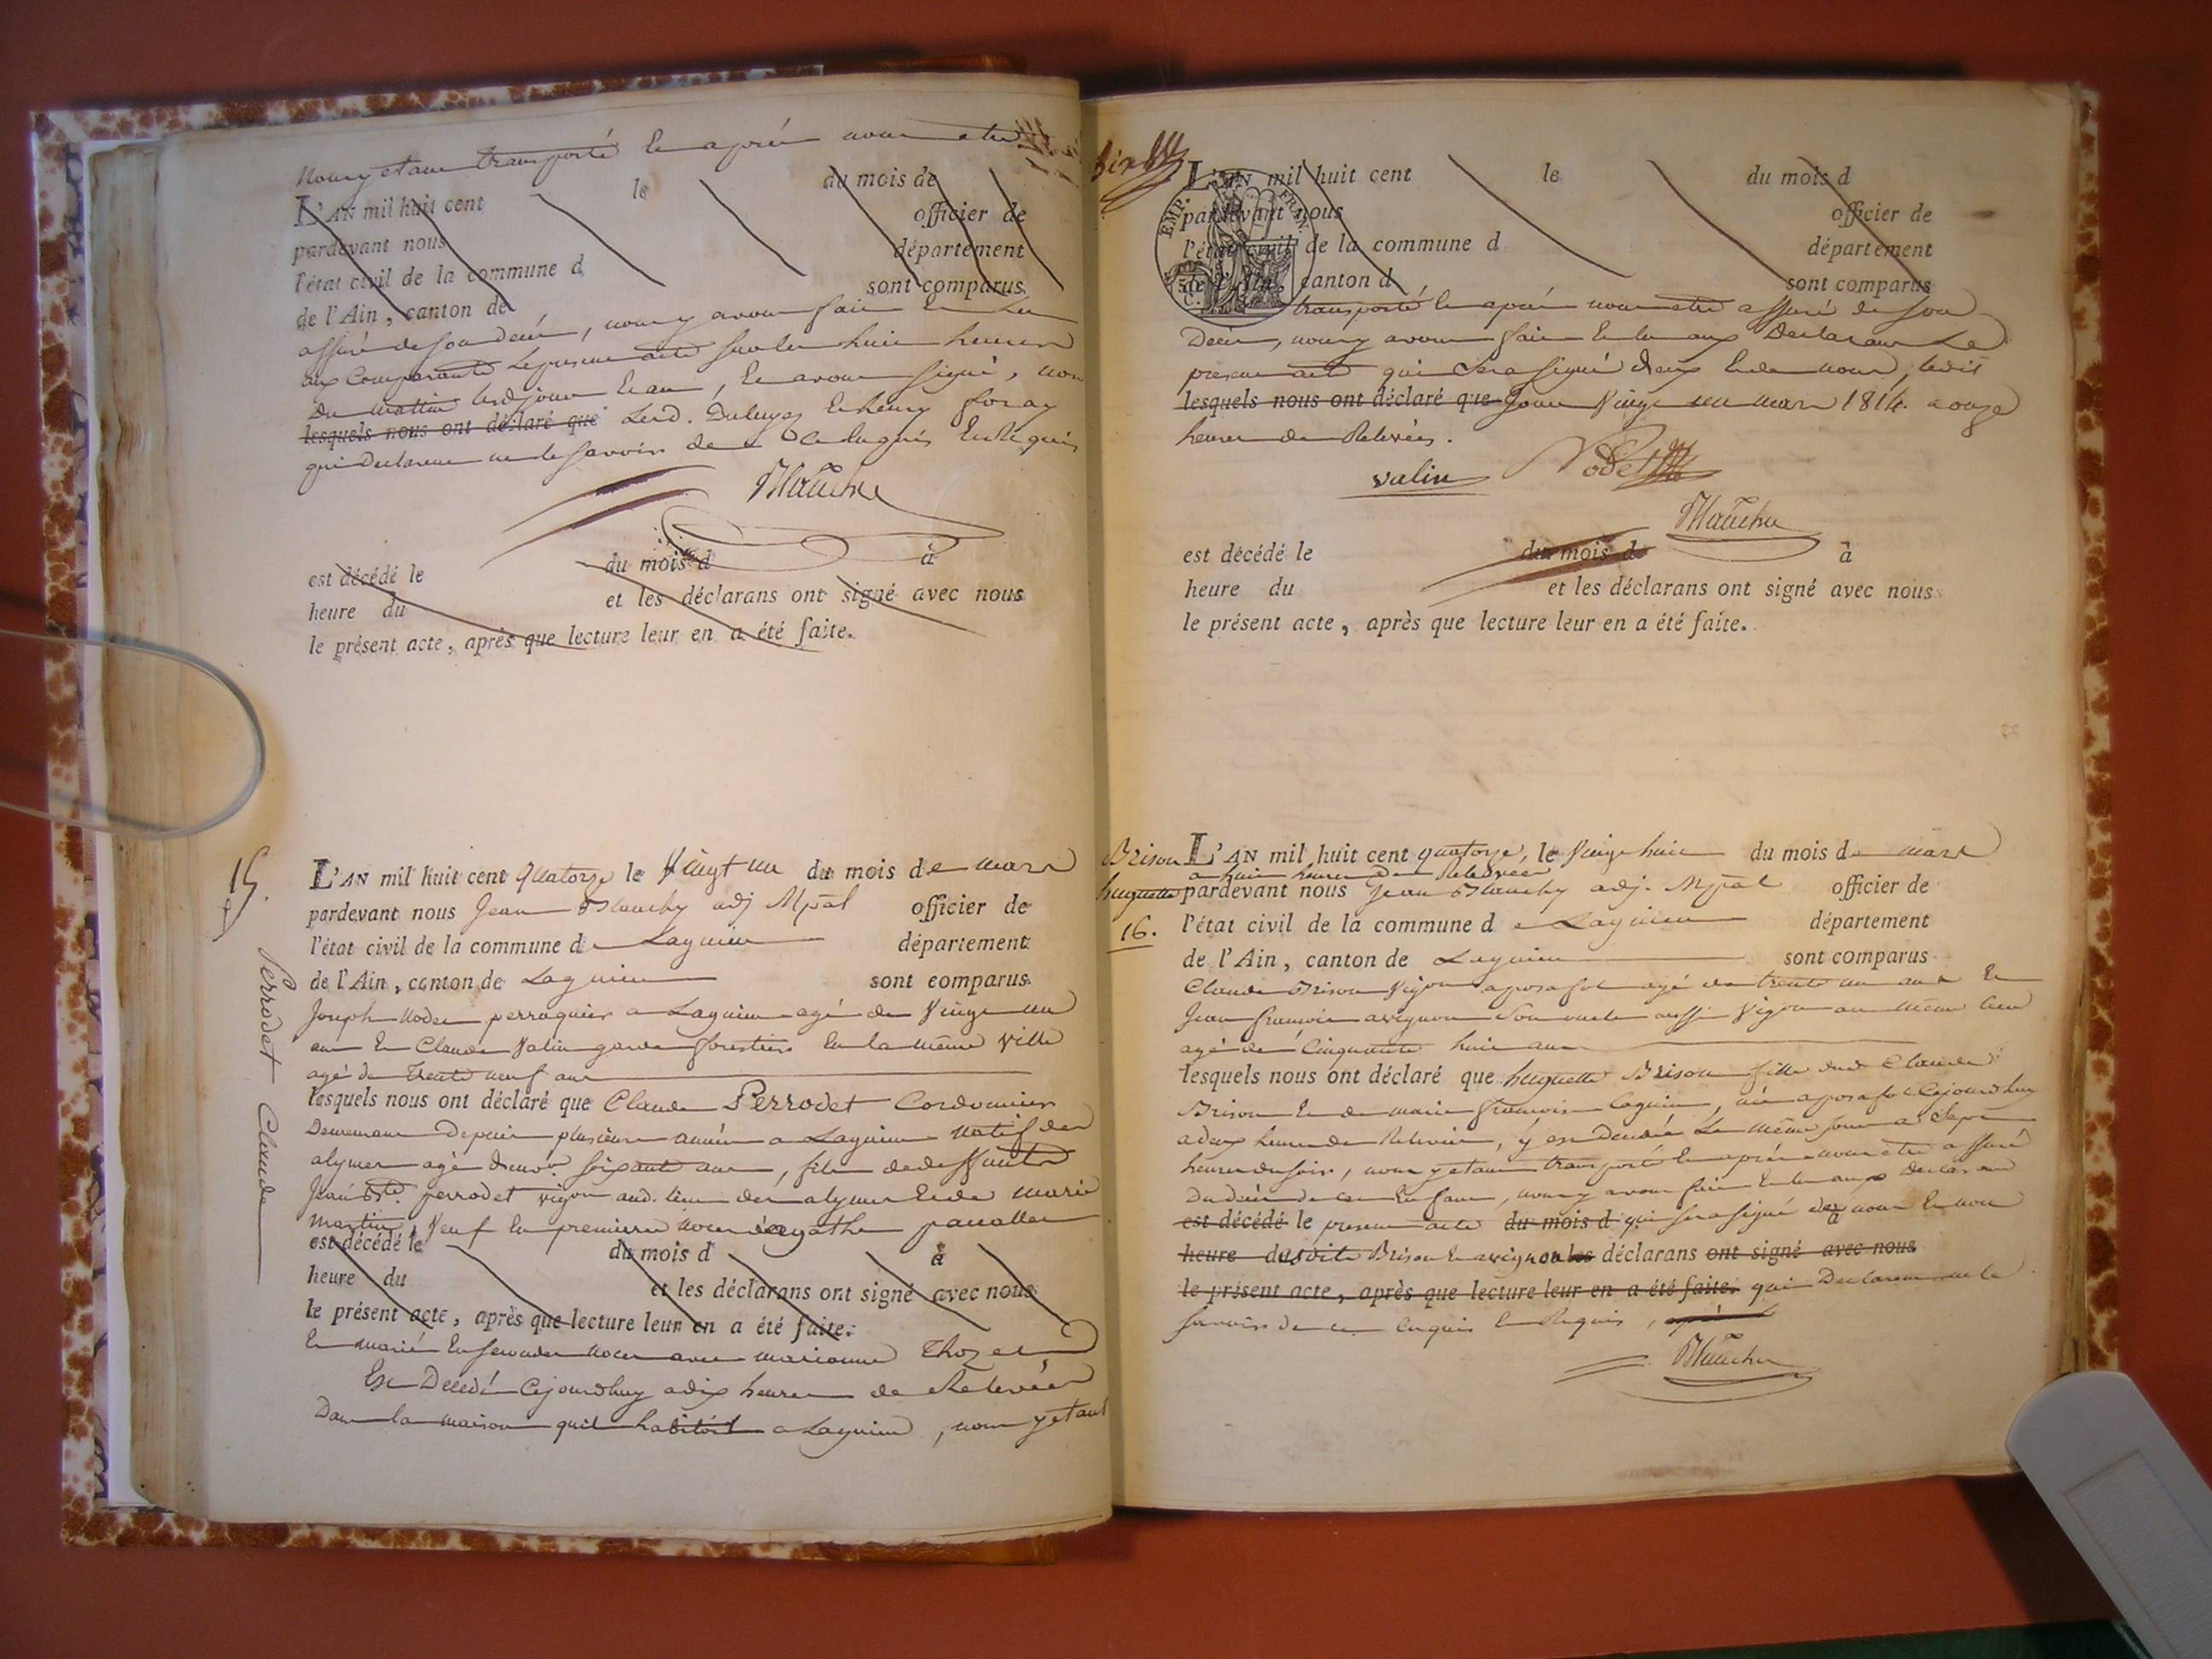 nous y etant transporté et après nous etre
L'AN mil huit cent le du mois de
pardevant nous officier de
l'état civil de la commune d département
de l'Ain, canton de sont comparus
assuré de son decés, nous y avons fait et lu
aux Comparants le present acte sur les huit heures
du matin lesd. jour et an, et avons signé, non
lesquels nous ont déclaré que Lesd. et henry foray
qui declarent ne le savoir de ce enquis et Requis
est décédé le du mois d à
heure du et les déclarans ont signé avec nous
le présent acte, après que lecture leur en a été faite.
15.
Perrodet Claude
L'AN mil huit cent quatorze le Vingt un du mois de mars
pardevant nous Jean Mauchy adj Mpal officier de
l'état civil de la commune de Lagnieu département
de l'Ain, canton de Lagnieu sont comparus
Joseph Nodet perruquier a Lagnieu agé de Vingt un
ans et Claude Valin garde forestier en la même ville
agé de trente neuf ans
lesquels nous ont déclaré que Claude Perrodet Cordonnier
Demeurant depuis plusieurs années a Lagnieu natif des
alymes agé d'environ soixante ans, fils de defunts
Jean Bte. perrodet vigon aud. lieu des alymes et de marie
martin, Veuf en premieres noces d'agathe
est décédé le du mois d à
heure du et les déclarans ont signé avec nous
le présent acte, après que lecture leur en a été faite.
et marié en secondes noces avec marianne
Est Decédé Cejourdhuy a dix heures de Relevée
Dans la maison quil habitoit a Lagnieu, nous y etant
L'AN mil huit cent le du mois d
pardevant nous officier de
l'état civil de la commune d département
de l'Ain, canton d sont comparus
EMP. FRAN.
transporté et après nous etre assuré de son
Decés, nous y avons fait et lu aux Declarans Le
present acte qui sera signé d'eux et de nous, ledit
lesquels nous ont déclaré que Jour Vingt un mars 1814. a onze
heures de Relevées.
valin Nodet
Mauchy
est décédé le du mois d à
heure du et les déclarans ont signé avec nous
le présent acte, après que lecture leur en a été faite.
Brison
huguette
16.
L'AN mil huit cent quatorze, le Vingt huit du mois de mars
a huit heures de Relevées
pardevant nous Jean Mauchy adj. Mpal officier de
l'état civil de la commune de Lagnieu département
de l'Ain, canton de Lagnieu sont comparus
Claude Brison Vigon a posafol agé de trente un ans et
Jean françois avignon son oncle aussi Vigon au même lieu
agé de Cinquante huit ans
lesquels nous ont déclaré que huguette Brison fille dud. Claude
Brison et de marie françoise, née a posafol Cejourdhuy
a deux heures de Relevée, y est Decedée Le même jour a sept
heures du soir, nous y etant transporté et après nous etre assuré
Du decés de cet Enfant, nous y avons fait et lu aux declarans
est décédé le present acte du mois d qui sera signé de à nous et non
heure du Brison et avignon les déclarans ont signé avec nous
le présent acte, après que lecture leur en a été faite. qui Declarent ne le
savoir de ce enquis et Requis,
Mauchy